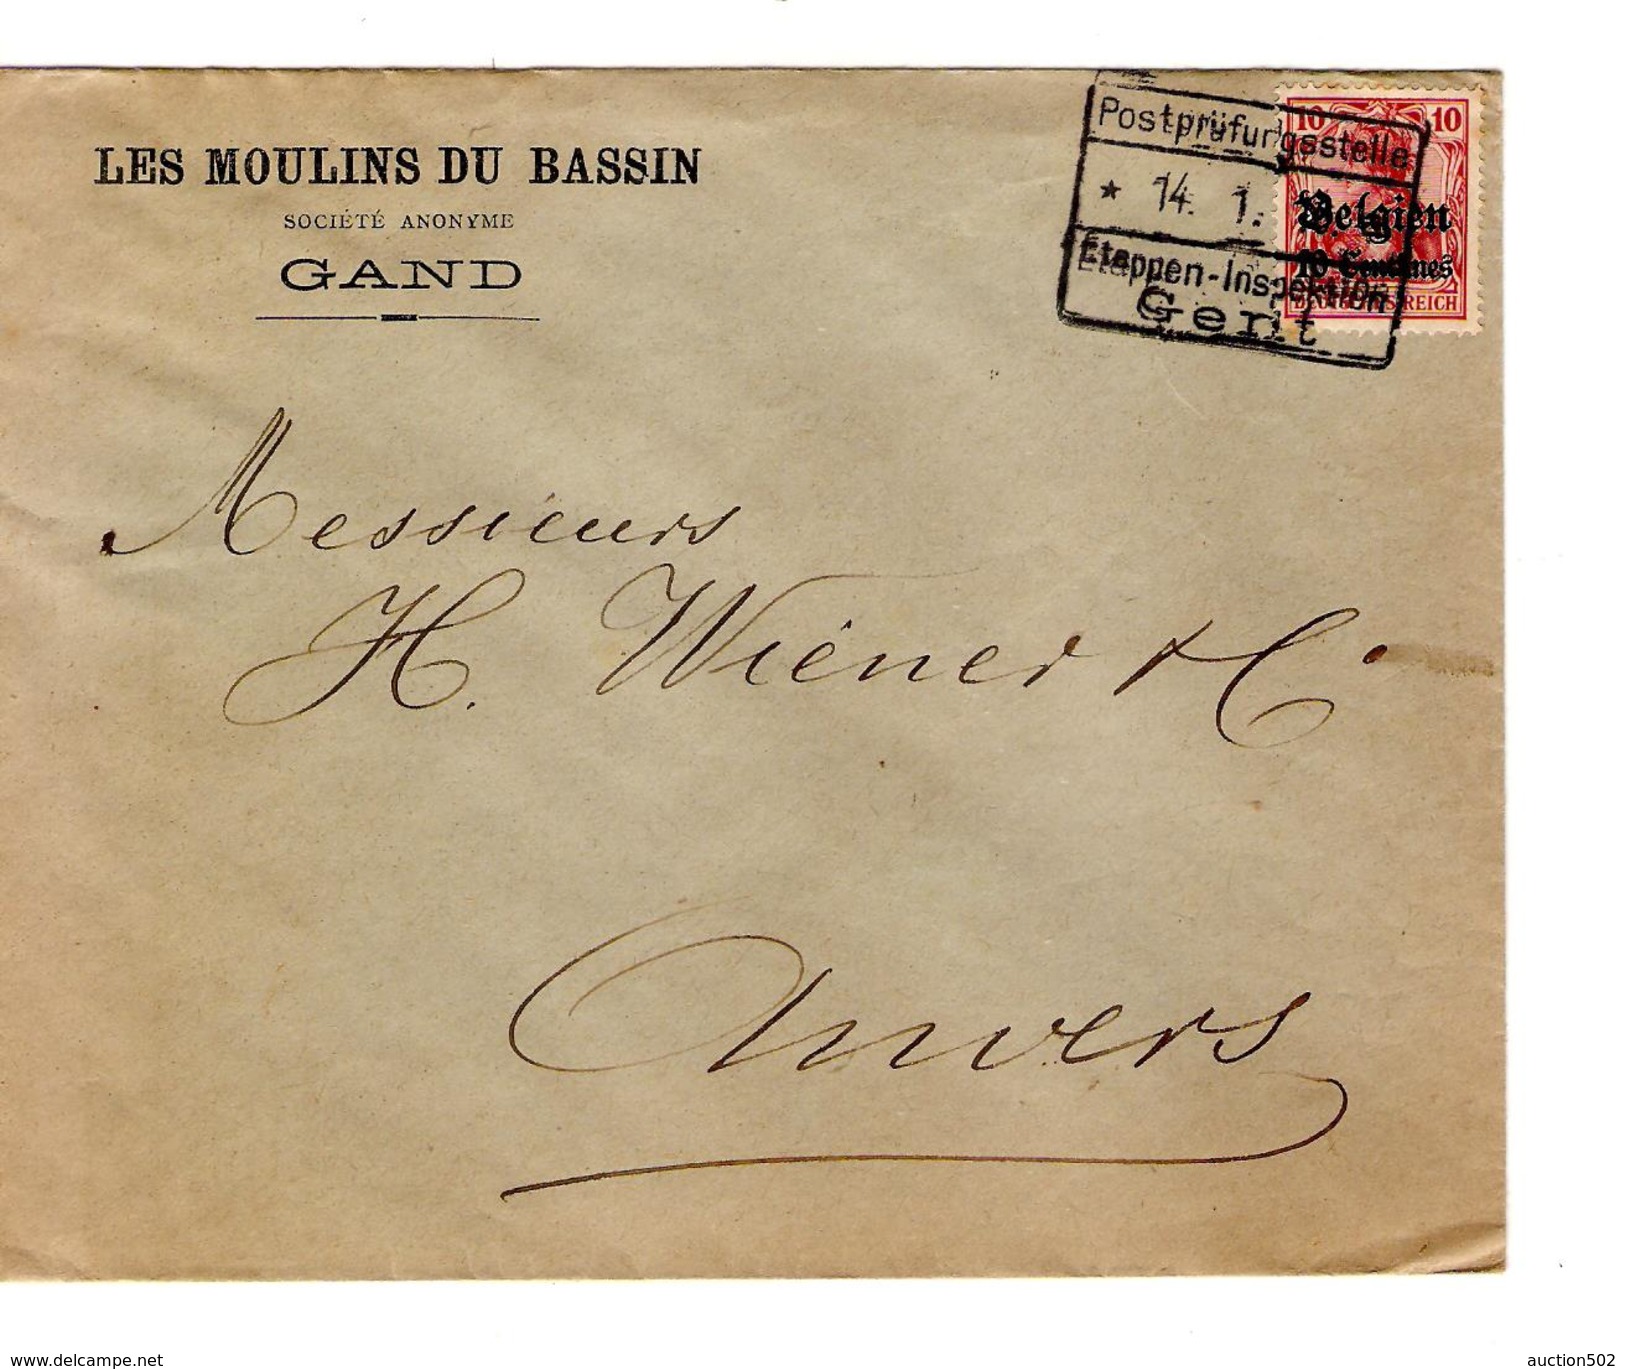 LES MOULINS DU BASSIN
SOCIÉTÉ ANONYME
GAND
Postprüfungsstelle
* 14. 1.
Etappen-Inspektion
Gent
10 10
Belgien
10 Centimes
DEUTSCHES REICH
Messieurs
H. Wiener & C.
Anvers
delcampe.net
auction502